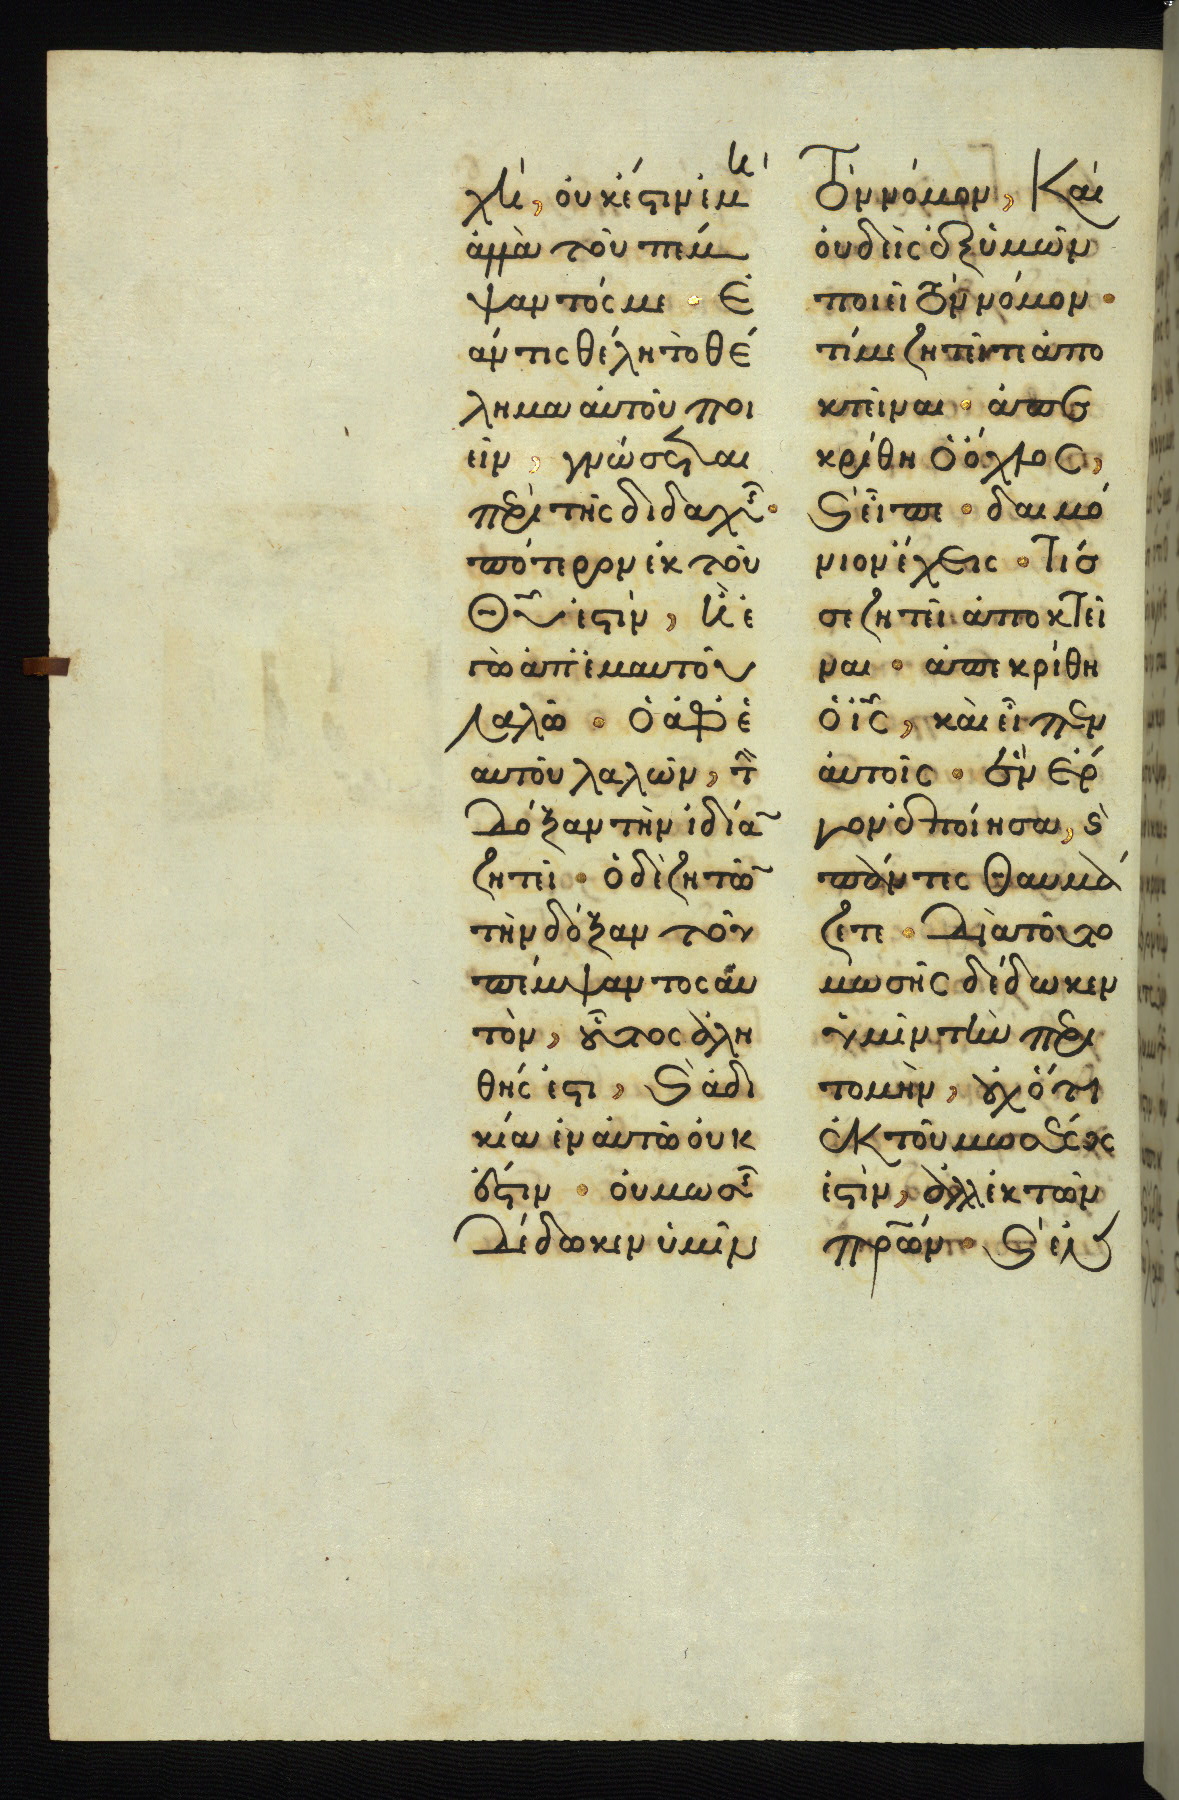 χὴ, οὐκ ἔστιν ἐμὴ
ἀλλὰ τοῦ πέμ
ψαντός με · Ἐ
άν τις θέλη τὸ θέ
λημα αὐτοῦ ποι
εῖν, γνώσεται
περὶ τῆς διδαχῆς ·
πότερον ἐκ τοῦ
Θῦ ἐστὶν, ἢ ἐ
γὼ ἀπ' ἐμαυτοῦ
λαλῶ · ὁ ἀφ' ἑ
αυτοῦ λαλῶν, τὴν
δόξαν τὴν ἰδίαν
ζητεῖ · ὁ δὲ ζητῶν
τὴν δόξαν τοῦ
πέμψαντος αὐ
τὸν, οὗτος ἀλη
θής ἐστι, καὶ ἀδι
κία ἐν αὐτῶ οὐκ
ἔστιν · οὐ μωσῆς
δέδωκεν ὑμῖν
τὸν νόμον, Καὶ
οὐδεὶς ἐξ ὑμῶν
ποιεῖ τὸν νόμον ·
τί με ζητεῖτε ἀπο
κτεῖναι · ἀπε
κρίθη ὁ ὄχλος,
καὶ εἶπε · δαιμό
νιον ἔχεις · τίς
σε ζητεῖ ἀποκτεῖ
ναι · ἀπεκρίθη
ὁ ἰς, καὶ εἶπεν
αὐτοῖς · ἓν ἔρ
γον ἐποίησα, καὶ
πάντες θαυμά
ζετε · Διατοῦτο
μωσῆς δέδωκεν
ὑμῖν τὴν περι
τομὴν, οὐχ ὅτι
ἐκ τοῦ μωσέως
ἐστὶν, ἀλλ' ἐκ τῶν
πρων · καὶ ἐν